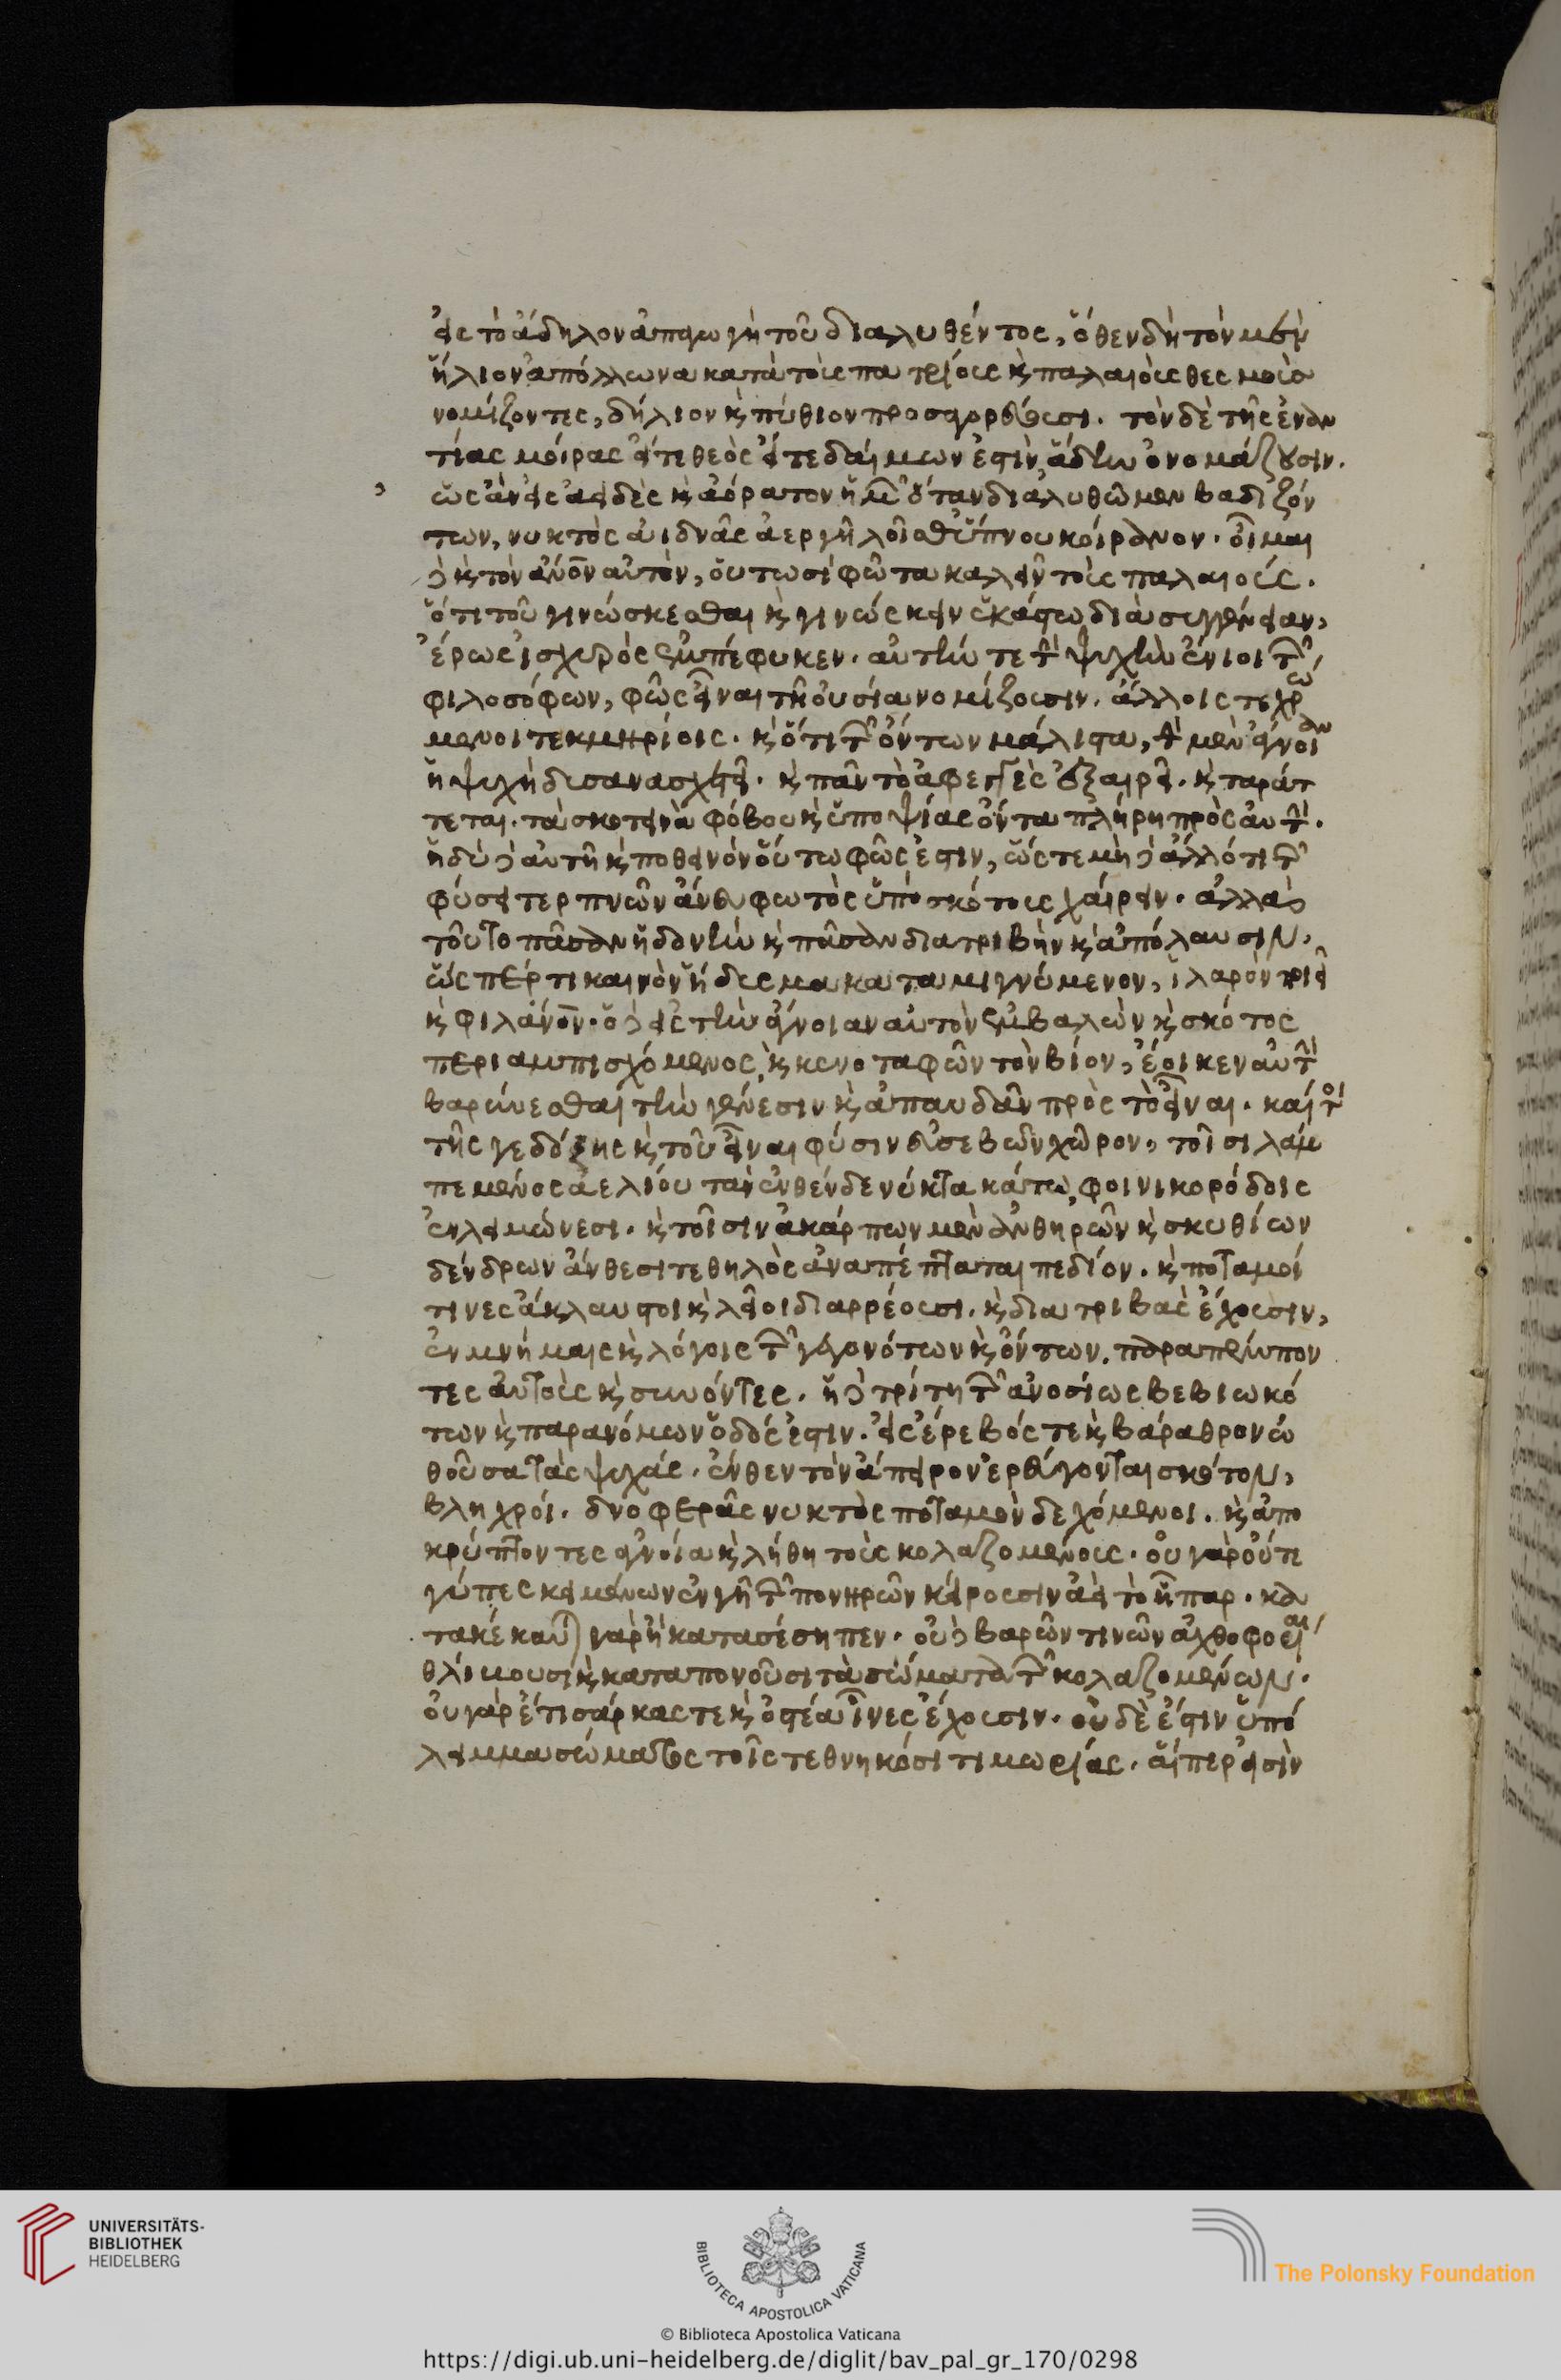 εἰς τὸ ἄδηλον ἀπαγωγὴ τοῦ διαλυθέντος, ὅθεν δὴ τὸν μὲν
ἥλιον ἀπόλλωνα κατὰ τοὺς πατρίους κ παλαιοὺς θεσμοὺς
νομίζοντες, δήλιον κ πύθιον προσαγορεύουσι. τὸν δὲ τῆς ἐναν
τίας μοίρας εἴτε θεὸς εἴτε δαίμων ἐστὶν ἅδην ὀνομάζουσιν.
ὡς ἂν εἰς ἀειδὲς κ ἀόρατον ἡμῶν ὅταν διαλυθῶμεν βαδιζόν
των, νυκτὸς ἀιδνᾶς ἀεργηλοῖο θ' ὕπνου κοίρανον. οἶμαι
δὲ κ τὸν ἄνον αὐτὸν, οὑτωσὶ φῶτα καλεῖν τοὺς παλαιούς.
ὅτι τοῦ γινώσκεσθαι κ γινώσκειν ἑκάστω διὰ συγγένειαν,
ἔρως ἰσχυρὸς ἐμπέφυκεν. αὐτήν τε τὴν ψυχὴν ἔνιοι τῶν
φιλοσόφων, φῶς εἶναι τῆ οὐσία νομίζουσιν. ἄλλοις τε χρώ
μενοι τεκμηρίοις. κ ὅτι τῶν ὄντων μάλιστα, τὴν μὲν ἄγνοιαν
ἡ ψυχὴ δυσανασχετεῖ. κ πᾶν τὸ ἀφεγγὲς ἐξαιρεῖ. κ ταράτ
τεται. τὰ σκοτεινὰ φόβου κ ὑποψίας ὄντα πλήρη πρὸς αὐτήν.
ἡδὺ δὲ αὐτῆ κ ποθεινὸν οὕτω φῶς ἐστιν, ὥστε μὴ δὲ ἄλλό τι τῶν
φύσει τερπνῶν ἄνευ φωτὸς ὑπὸ σκότους χαίρειν. ἀλλὰ
τοῦτο πᾶσαν ἡδονὴν κ πᾶσαν διατριβὴν κ ἀπόλαυσιν,
ὥσπέρ τι καινὸν ἥδυσμα καταμιγνύμενον, ἱλαρὸν ποιεῖ
κ φιλάνον. ὁ δὲ εἰς τὴν ἄγνοιαν αὑτὸν ἐμβαλὼν κ σκότος
περιαμπισχόμενος, κ κενοταφῶν τὸν βίον, ἔοικεν αὐτὴν
βαρύνεσθαι τὴν γένεσιν κ ἀπαυδᾶν πρὸς τὸ εἶναι. καίτοι
τῆς γε δόξης κ τοῦ εἶναι φύσιν εὐσεβῶν χῶρον, τοῖσι λάμ
πε μένος ἀελίου τὰν ἐνθένδε νύκτα κάτω, φοινικορόδοις
ἐιλειμώνεσι. κ τοῖσιν ἀκάρπων μὲν ἀνθηρῶν κ σκυθίων
δένδρων ἄνθεσι τεθηλὸς ἀναπέπταται πεδίον. κ ποταμοί
τινες ἄκλαυστοι κ λεῖοι διαρρέουσι. κ διατριβὰς ἔχουσιν,
ἐν μνήμαις κ λόγοις τῶν γεγονότων κ ὄντων. παραπέμπον
τες αὑτοὺς κ συνόντες. ἡ δὲ τρίτη τῶν ἀνοσίως βεβιωκό
των κ παρανόμων ὁδός ἐστιν. εἰς ἔρεβός τε κ βάραθρον ὠ
θοῦσα τὰς ψυχάς. ἔνθεν τὸν ἄπειρον ἐρεύγονται σκότον,
βληχροί. δνοφερᾶς νυκτὸς ποταμοὶ δεχόμενοι. κ ἀπο
κρύπτοντες ἀγνοία κ λήθη τοὺς κολαζομένους. οὐ γὰρ οὔτε
γύπες κειμένων ἐν γῆ τῶν πονηρῶν κείρουσιν ἀεὶ τὸ ἧπαρ. κα
τακέκαυται γὰρ ἢ κατασέσηπεν. οὐδὲ βαρῶν τινῶν ἀχθοφορίαι
θλίβουσι κ καταπονοῦσι τὰ σώματα τῶν κολαζομένων.
οὐ γὰρ ἔτι σάρκας τε κ ὀστέα ἶνες ἔχουσιν. οὐδὲ ἔστιν ὑπό
λειμμα σώματος τοῖς τεθνηκόσι τιμωρίας. αἵπερ εἰσὶν
UNIVERSITÄTS-
BIBLIOTHEK
HEIDELBERG
BIBLIOTECA APOSTOLICA VATICANA
The Polonsky Foundation
© Biblioteca Apostolica Vaticana
https://digi.ub.uni-heidelberg.de/diglit/bav_pal_gr_170/0298